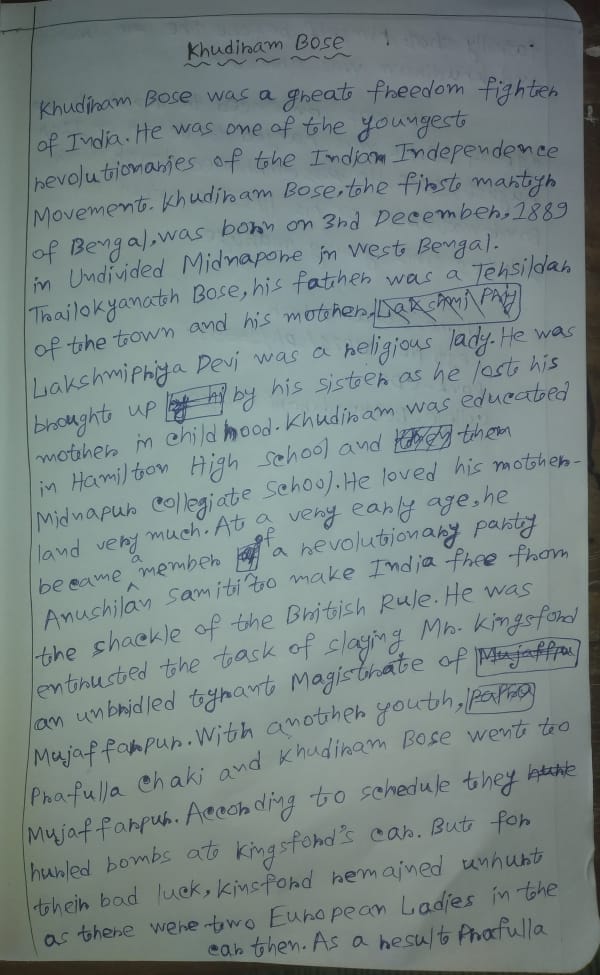 Khudiram Bose
Khudiram Bose was a great freedom fighter
of India. He was one of the youngest
revolutionaries of the Indian Independence
Movement. Khudiram Bose, the first martyr
of Bengal, was born on 3rd December, 1889
in Undivided Midnapore in West Bengal.
Trailokyanath Bose, his father was a Tehsildar
of the town and his mother, Lakshmi Priy
Lakshmipriya Devi was a religious lady. He was
brought up by hi by his sister as he lost his
mother in childhood. Khudiram was educated
in Hamilton High School and then
Midnapur Collegiate School. He loved his mother-
land very much. At a very early age, he
became a member of a revolutionary party
'Anushilan Samiti' to make India free from
the shackle of the British Rule. He was
entrusted the task of slaying Mr. Kingsford
an unbridled tyrant Magistrate of Mujaffar
Mujaffarpur. With another youth,
Prafulla Chaki and Khudiram Bose went to
Mujaffarpur. According to schedule they
hurled bombs at Kingsford's car. But for
their bad luck, Kinsford remained unhurt
as there were two European Ladies in the
car then. As a result Prafulla